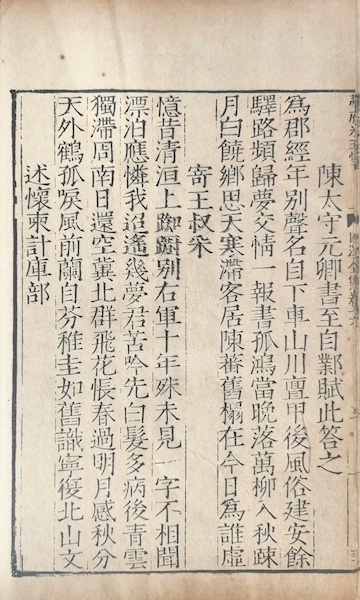 陳太守元卿書至自鄴賦此答之
為郡經年別聲名自下車山川亶甲後風俗建安餘
驛路頻歸夢交情一報書孤鴻當晚落萬柳入秋疎
月白饒鄉思天寒滯客居陳蕃舊榻在今日為誰虛
寄王叔
憶昔清洹上踟躕別右軍十年殊未見一字不相聞
漂泊應憐我迢遙幾夢君苦吟先白髮多病後青雲
獨滯周南日還空冀北群飛花悵春過明月感秋分
天外鶴孤唳風前蘭自芬稚圭如舊識寧復北山文
述懷柬計庫部